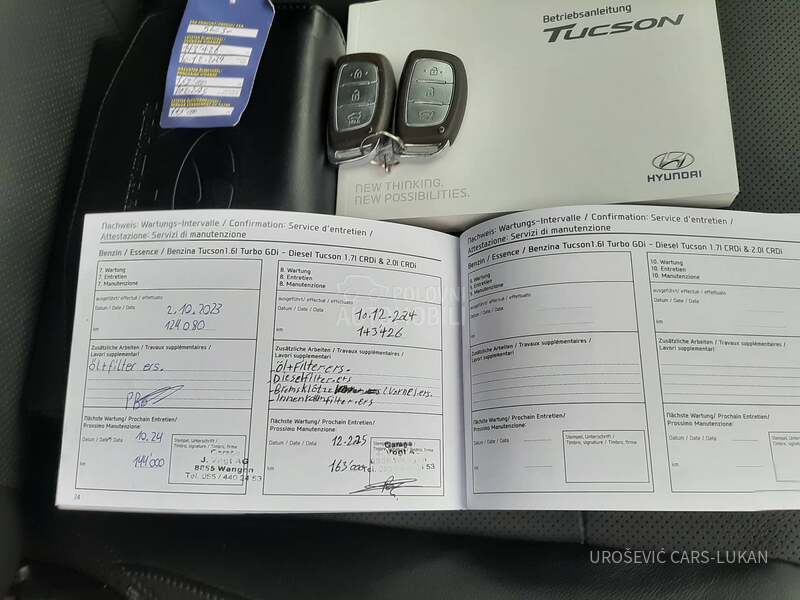 Betriebsanleitung
TUCSON
NEW THINKING.
NEW POSSIBILITIES.
HYUNDAI
Nachweis: Wartungs-Intervalle / Confirmation: Service d'entretien /
Attestazione: Servizi di manutenzione
Benzin / Essence / Benzina Tucson1.6l Turbo GDi – Diesel Tucson 1.7l CRDi & 2.0l CRDi
7. Wartung
7. Entretien
7. Manutenzione
ausgeführt/ effectué / effettuato
Datum / Date / Data 2.10.2023
km 124080
Zusätzliche Arbeiten / Travaux supplémentaires /
Lavori supplementari
öl+filter ers.
Nächste Wartung/ Prochain Entretien/
Prossimo Manutenzione:
Datum / Date / Data 10.24
km 144'000
Stempel, Unterschrift /
Timbre, Signature / Timbro, firma
8855 Wangen
Tel. 055 / 440 24 53
24
8. Wartung
8. Entretien
8. Manutenzione
ausgeführt/ effectué / effettuato
Datum / Date / Data 10.12.224
km 143'426
Zusätzliche Arbeiten / Travaux supplémentaires /
Lavori supplementari
-öl+filter ers.
-Dieselfilter ers
-Bremsklötze (Vorne) ers.
-Innenraumfilter ers
Nächste Wartung/ Prochain Entretien/
Prossimo Manutenzione:
Datum / Date / Data 12.225
km 163'000
Garage
Vogt A
53
Nachweis: Wartungs-Intervalle / Confirmation: Service d'entretien /
Attestazione: Servizi di manutenzione
Benzin / Essence / Benzina Tucson1.6l Turbo GDi – Diesel Tucson 1.7l CRDi & 2.0l CRDi
9. Wartung
9. Entretien
9. Manutenzione
ausgeführt/ effectué / effettuato
Datum / Date / Data
km
Zusätzliche Arbeiten / Travaux supplémentaires /
Lavori supplementari
Nächste Wartung/ Prochain Entretien/
Prossimo Manutenzione:
Datum / Date / Data
km
Stempel, Unterschrift /
Timbre, Signature / Timbro, firma
10. Wartung
10. Entretien
10. Manutenzione
ausgeführt/ effectué / effettuato
Datum / Date / Data
km
Zusätzliche Arbeiten / Travaux supplémentaires /
Lavori supplementari
Nächste Wartung/ Prochain Entretien/
Prossimo Manutenzione:
Datum / Date / Data
km
POLOVNI
AUTOMOBILI
UROŠEVIĆ CARS-LUKAN